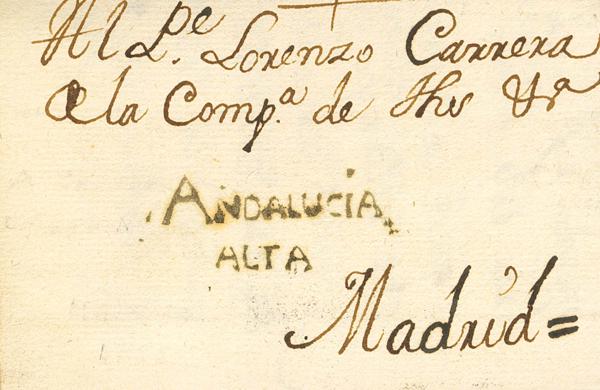 Al P.e Lorenzo Carrera
de la Comp.a de Jhs
ANDALUCÍA
ALTA
Madrid =